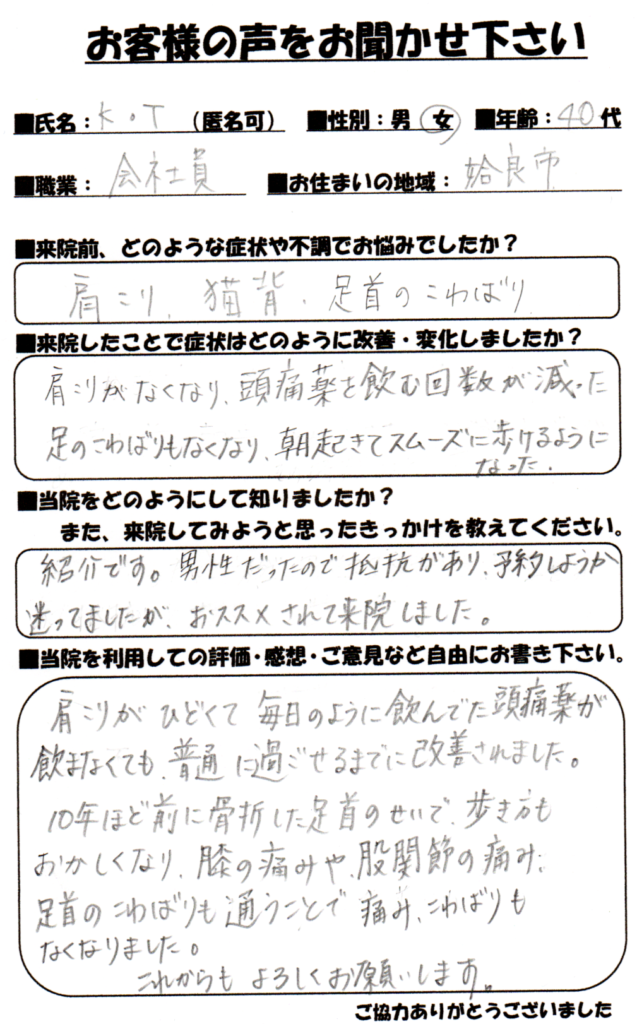 お客様の声をお聞かせ下さい
■氏名：K.T （匿名可） ■性別：男 女 ■年齢：40代
■職業： 会社員 ■お住まいの地域： 姶良市
■来院前、どのような症状や不調でお悩みでしたか？
肩こり、猫背、足首のこわばり
■来院したことで症状はどのように改善・変化しましたか？
肩こりがなくなり、頭痛薬を飲む回数が減った
足のこわばりもなくなり、朝起きてスムーズに歩けるように
なった.
■当院をどのようにして知りましたか？
また、来院してみようと思ったきっかけを教えてください。
紹介です。男性だったので抵抗があり、予約しようか
迷ってましたが、おススメされて来院しました。
■当院を利用しての評価・感想・ご意見など自由にお書き下さい。
肩こりがひどくて毎日のように飲んでた頭痛薬が
飲まなくても、普通に過ごせるまでに改善されました。
10年ほど前に骨折した足首のせいで、歩き方も
おかしくなり、膝の痛みや、股関節の痛み、
足首のこわばりも通うことで痛み、こわばりも
なくなりました。
これからもよろしくお願いします。
ご協力ありがとうございました